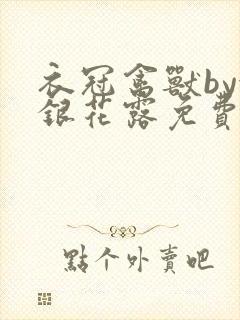 衣冠禽獸by
銀花露免費
點个外賣吧